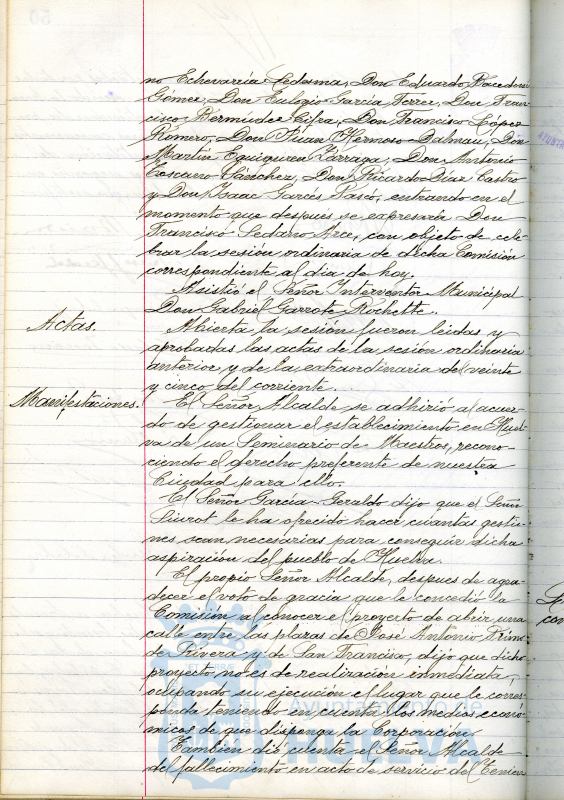 no Echevarria Ledesma, Don Eduardo
Gómez, Don Eulogio Garcia Ferrer, Don Fran-
cisco Bermudez Cifra, Don Francisco López
Romero, Don Juan Hermoso Dalmau, Don
Martín Eguiguren Larraga, Don Antonio
Toscano Sánchez, Don Ricardo Diaz Castro
y Don Isaac Garcés Pascó, entrando en el
momento que después se expresará Don
Francisco Sedano Arce, con objeto de cele-
brar la sesión ordinaria de dicha Comisión
correspondiente al dia de hoy.
Asistió el Señor Interventor Municipal
Don Gabriel Garrote Rochette.
Actas.
Abierta la sesión fueron leidas y
aprobadas las actas de la sesión ordinaria
anterior y de la extraordinaria del veinte
y cinco del corriente.
Manifestaciones.
El Señor Alcalde se adhirió al acuer-
do de gestionar el establecimiento en Huel-
va de un Seminario de Maestros, recono-
ciendo el derecho preferente de nuestra
Ciudad para ello.
El Señor García-Geraldo dijo que el Señor
Siurot le ha ofrecido hacer cuantas gestio-
nes sean necesarias para conseguir dicha
aspiración del pueblo de Huelva.
El propio Señor Alcalde, despues de agra-
decer el voto de gracia que le concedió la
Comisión al conocer el proyecto de abrir una
calle entre las plazas de José Antonio Primo
de Rivera y de San Francisco, dijo que dicho
proyecto no es de realización inmediata,
ocupando su ejecución el lugar que le corres-
ponda teniendo en cuenta los medios econó-
micos de que disponga la Corporación.
También dió cuenta el Señor Alcalde
del fallecimiento en acto de servicio del Tenien
Ayuntamiento de
HUELVA